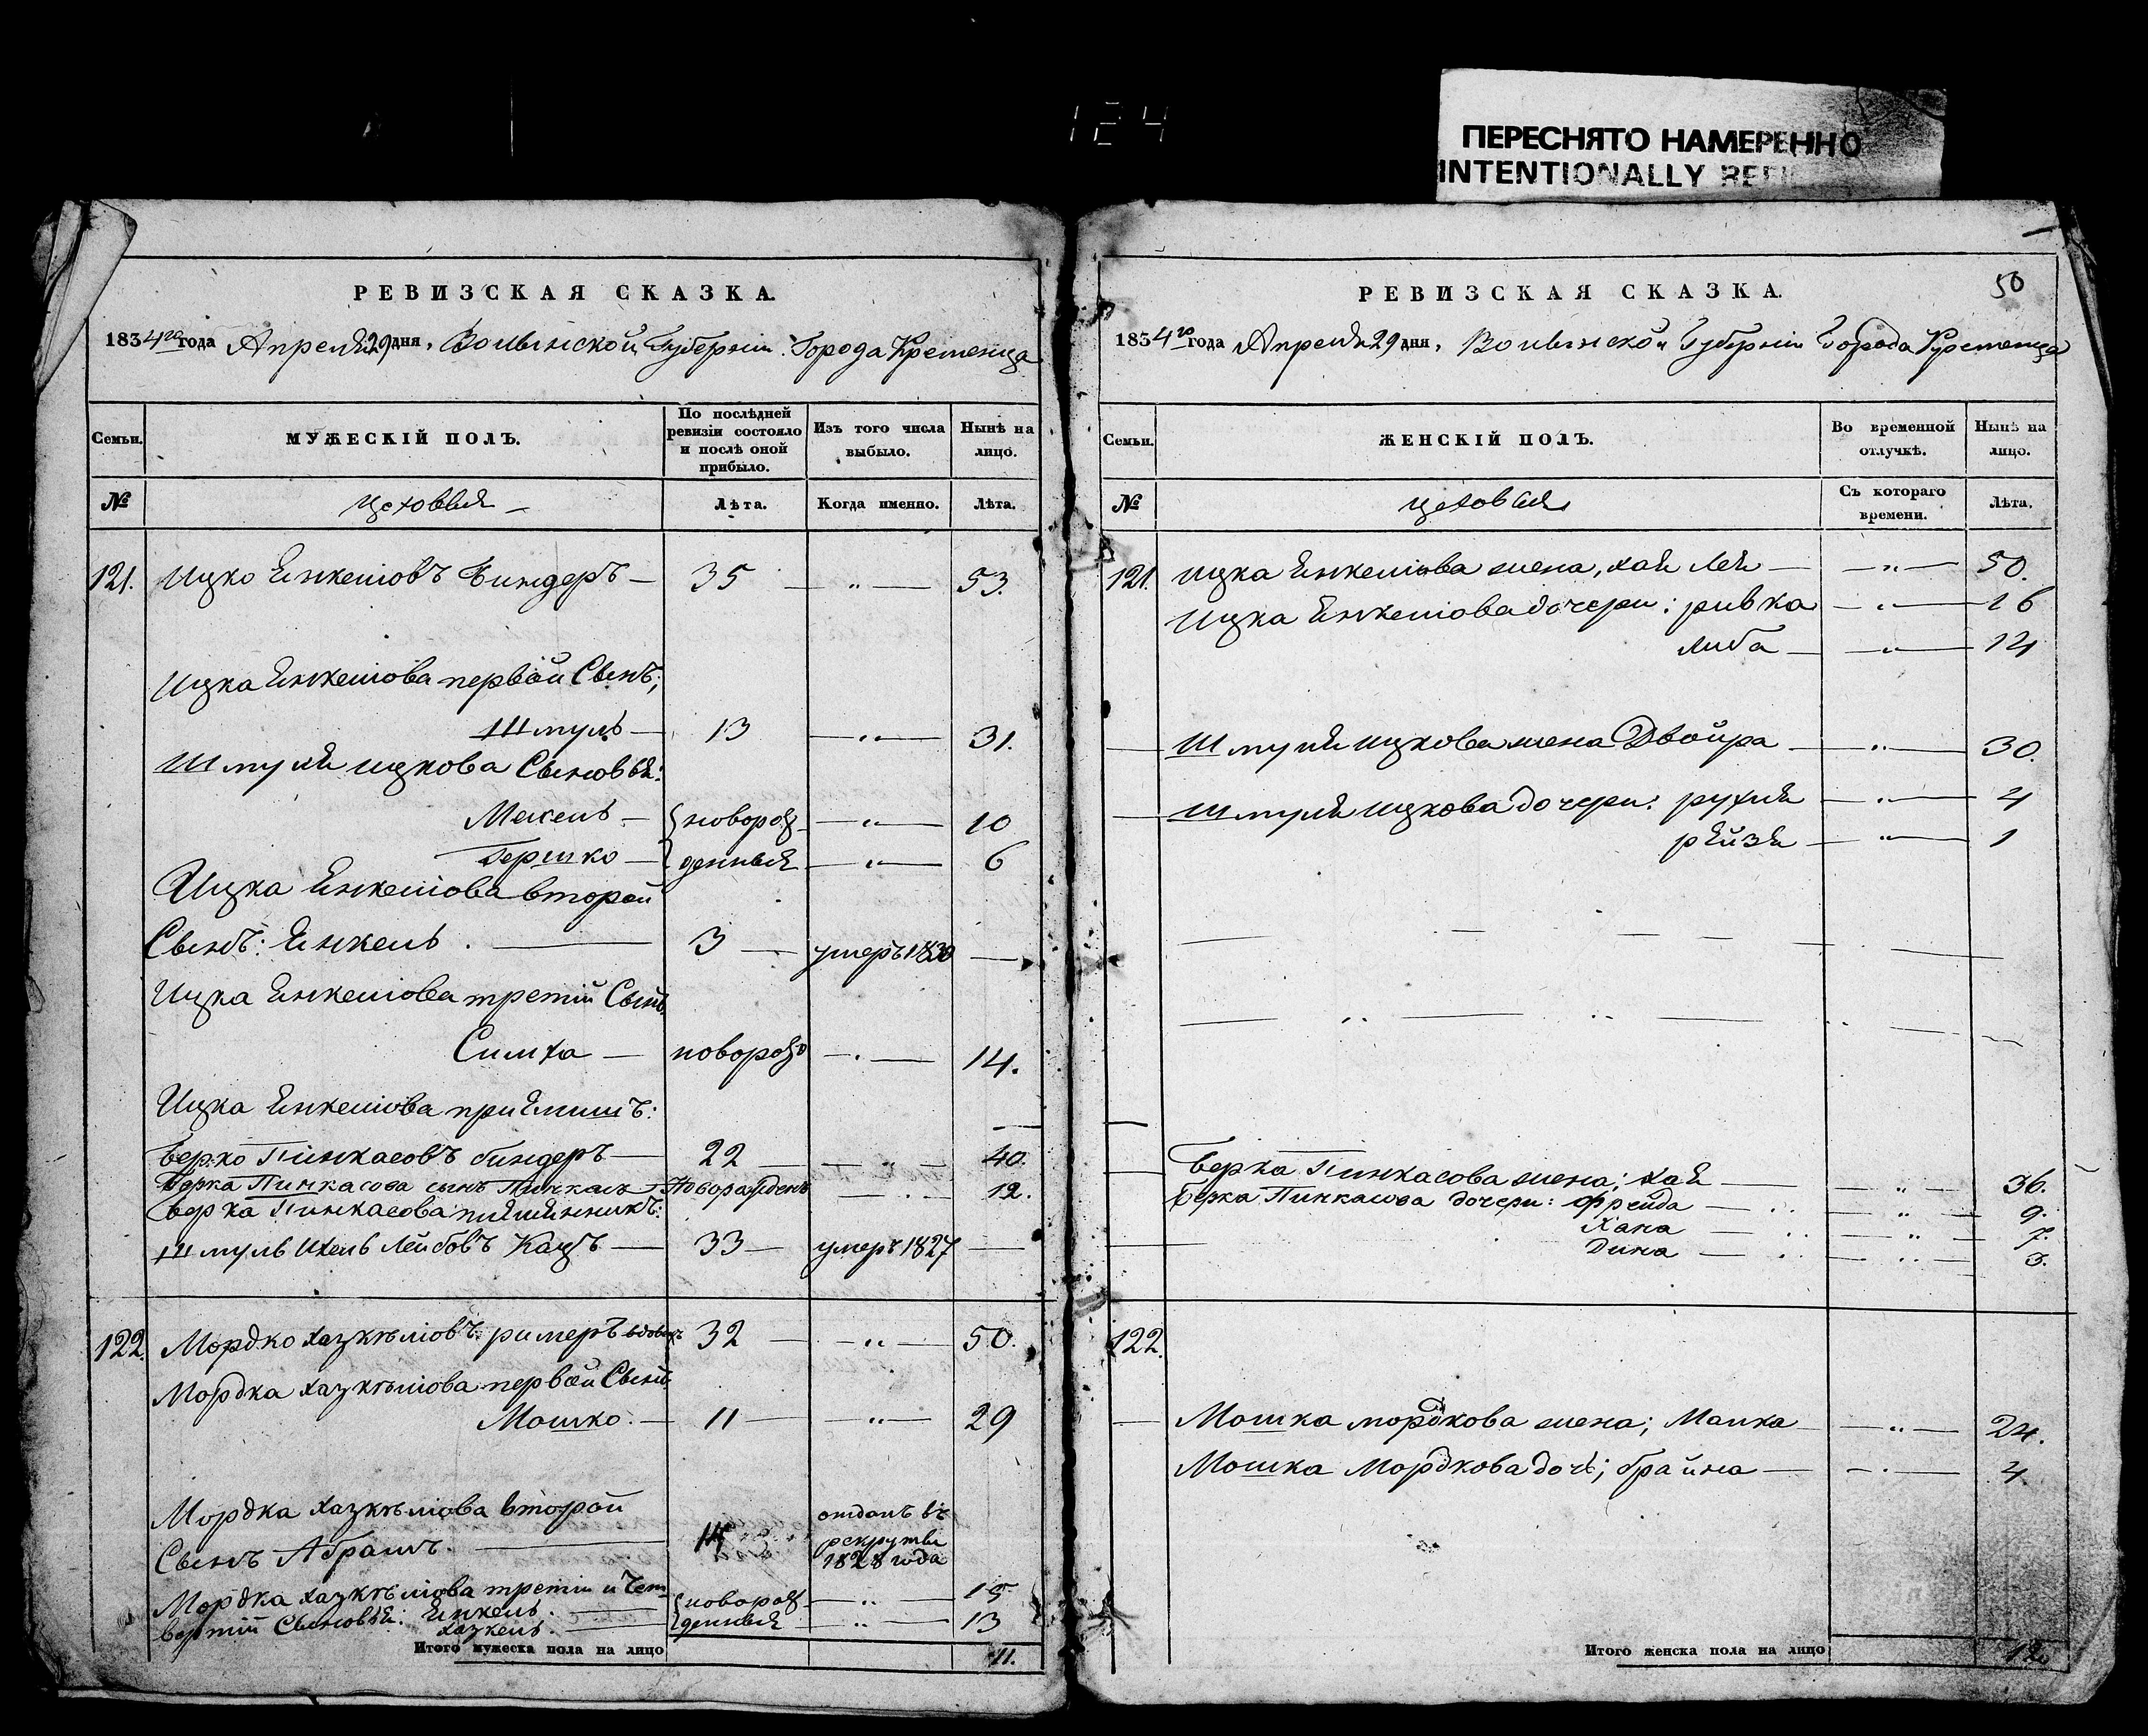 124
ПЕРЕСНЯТО НАМЕРЕННО
INTENTIONALLY
РЕВИЗСКАЯ СКАЗКА.
1834го года Апреля 29 дня, Волынской Губерніи Города Кременца
Семьи. МУЖЕСКІЙ ПОЛЪ. По послѣдней ревизіи состояло и послѣ оной прибыло. Изъ того числа выбыло. Нынѣ на лицо.
№ Цеховыя Лѣта. Когда именно. Лѣта.
121. Ицко Янкелiовъ Биндеръ — 35 — „ — 53.
Ицка Янкелiова первой Сынъ;
Шмуль — 13 — „ — 31.
Шмуля ицкова Сыновья:
Мехель — новорож — „ — 10
Гершко — денныя — „ — 6
Ицка Янкелiова второй
Сынъ: Янкель . — 3 — умеръ 1830 —
Ицка Янкелiова третiй Сынъ,
Симха — новорож — 14.
Ицка Янкелiова приемышъ:
Берко Пинкасовъ биндеръ — 22 — „ — 40.
Берка Пинкасова сынъ Пинкась Новорожденъ — 12.
Берка Пинкасова племянникъ:
Шмуль Ихель Лейбовъ Кацъ — 33 — умеръ 1827 —
122. Мордко Хазкѣлiовъ римеръ вдовецъ 32 — „ — 50.
Мордка Хазкѣлiова первой Сынъ,
Мошко. — 11 — „ — 29
Мордка Хазкѣлiова второй
Сынъ Абрамъ. — отданъ въ рекруты 1828 года
Мордка Хазкѣлiова третiй и Чет-
вертiй Сыновья: Янкель. — новорож — „ — 15
Хазкель. — денныя — „ — 13
Итого мужеска пола на лицо 11.
50
РЕВИЗСКАЯ СКАЗКА.
1834го года Апреля 29 дня, Волынской Губерніи Города Кременца
Семьи. ЖЕНСКІЙ ПОЛЪ. Во временной отлучкѣ. Нынѣ на лицо.
№ цеховыя Съ котораго времени. Лѣта.
121. Ицка Янкелiова жена, хая Лея — „ — 50.
Ицка Янкелiова дочери: ривка — „ — 16
Либа — „ — 14
Шмуля ицкова жена Двойра — „ — 30.
Шмуля ицкова дочери: рухля — „ — 4
рейзя — „ — 1
Берка Пинкасова жена; хая — „ — 36.
Берка Пинкасова дочери: Фрейда — „ — 9.
Хана — „ — 7.
Дина — „ — 3.
122.
Мошка мордкова жена; Малка — „ — 24.
Мошка Мордкова дочь; брайна — 4.
Итого женска пола на лицо 12.